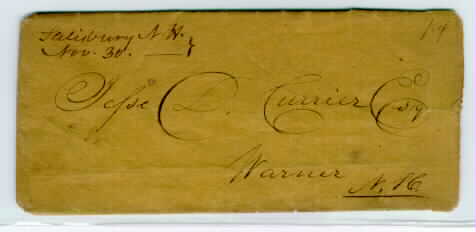 Salisbury N.H.
Nov. 30.
Jesse D. Currier Esq
Warner
N.H.